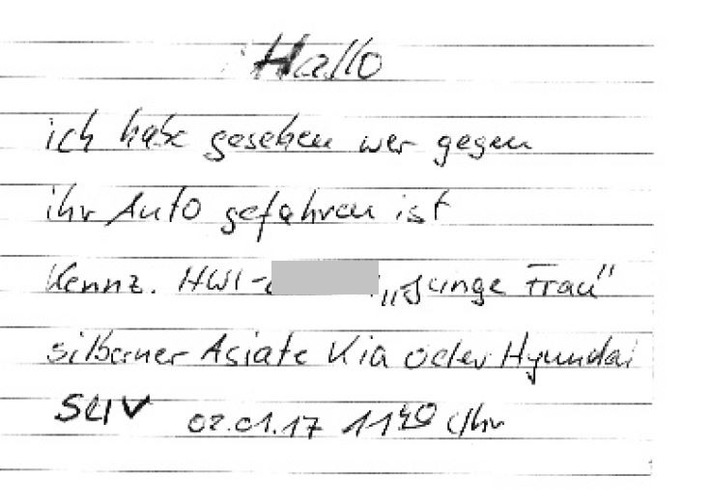 Hallo
ich habe gesehen wer gegen
ihr Auto gefahren ist
Kennz. HWI- „Junge Frau"
silberner Asiate Kia oder Hyundai
SUV 02.01.17 11⁴⁰ Uhr